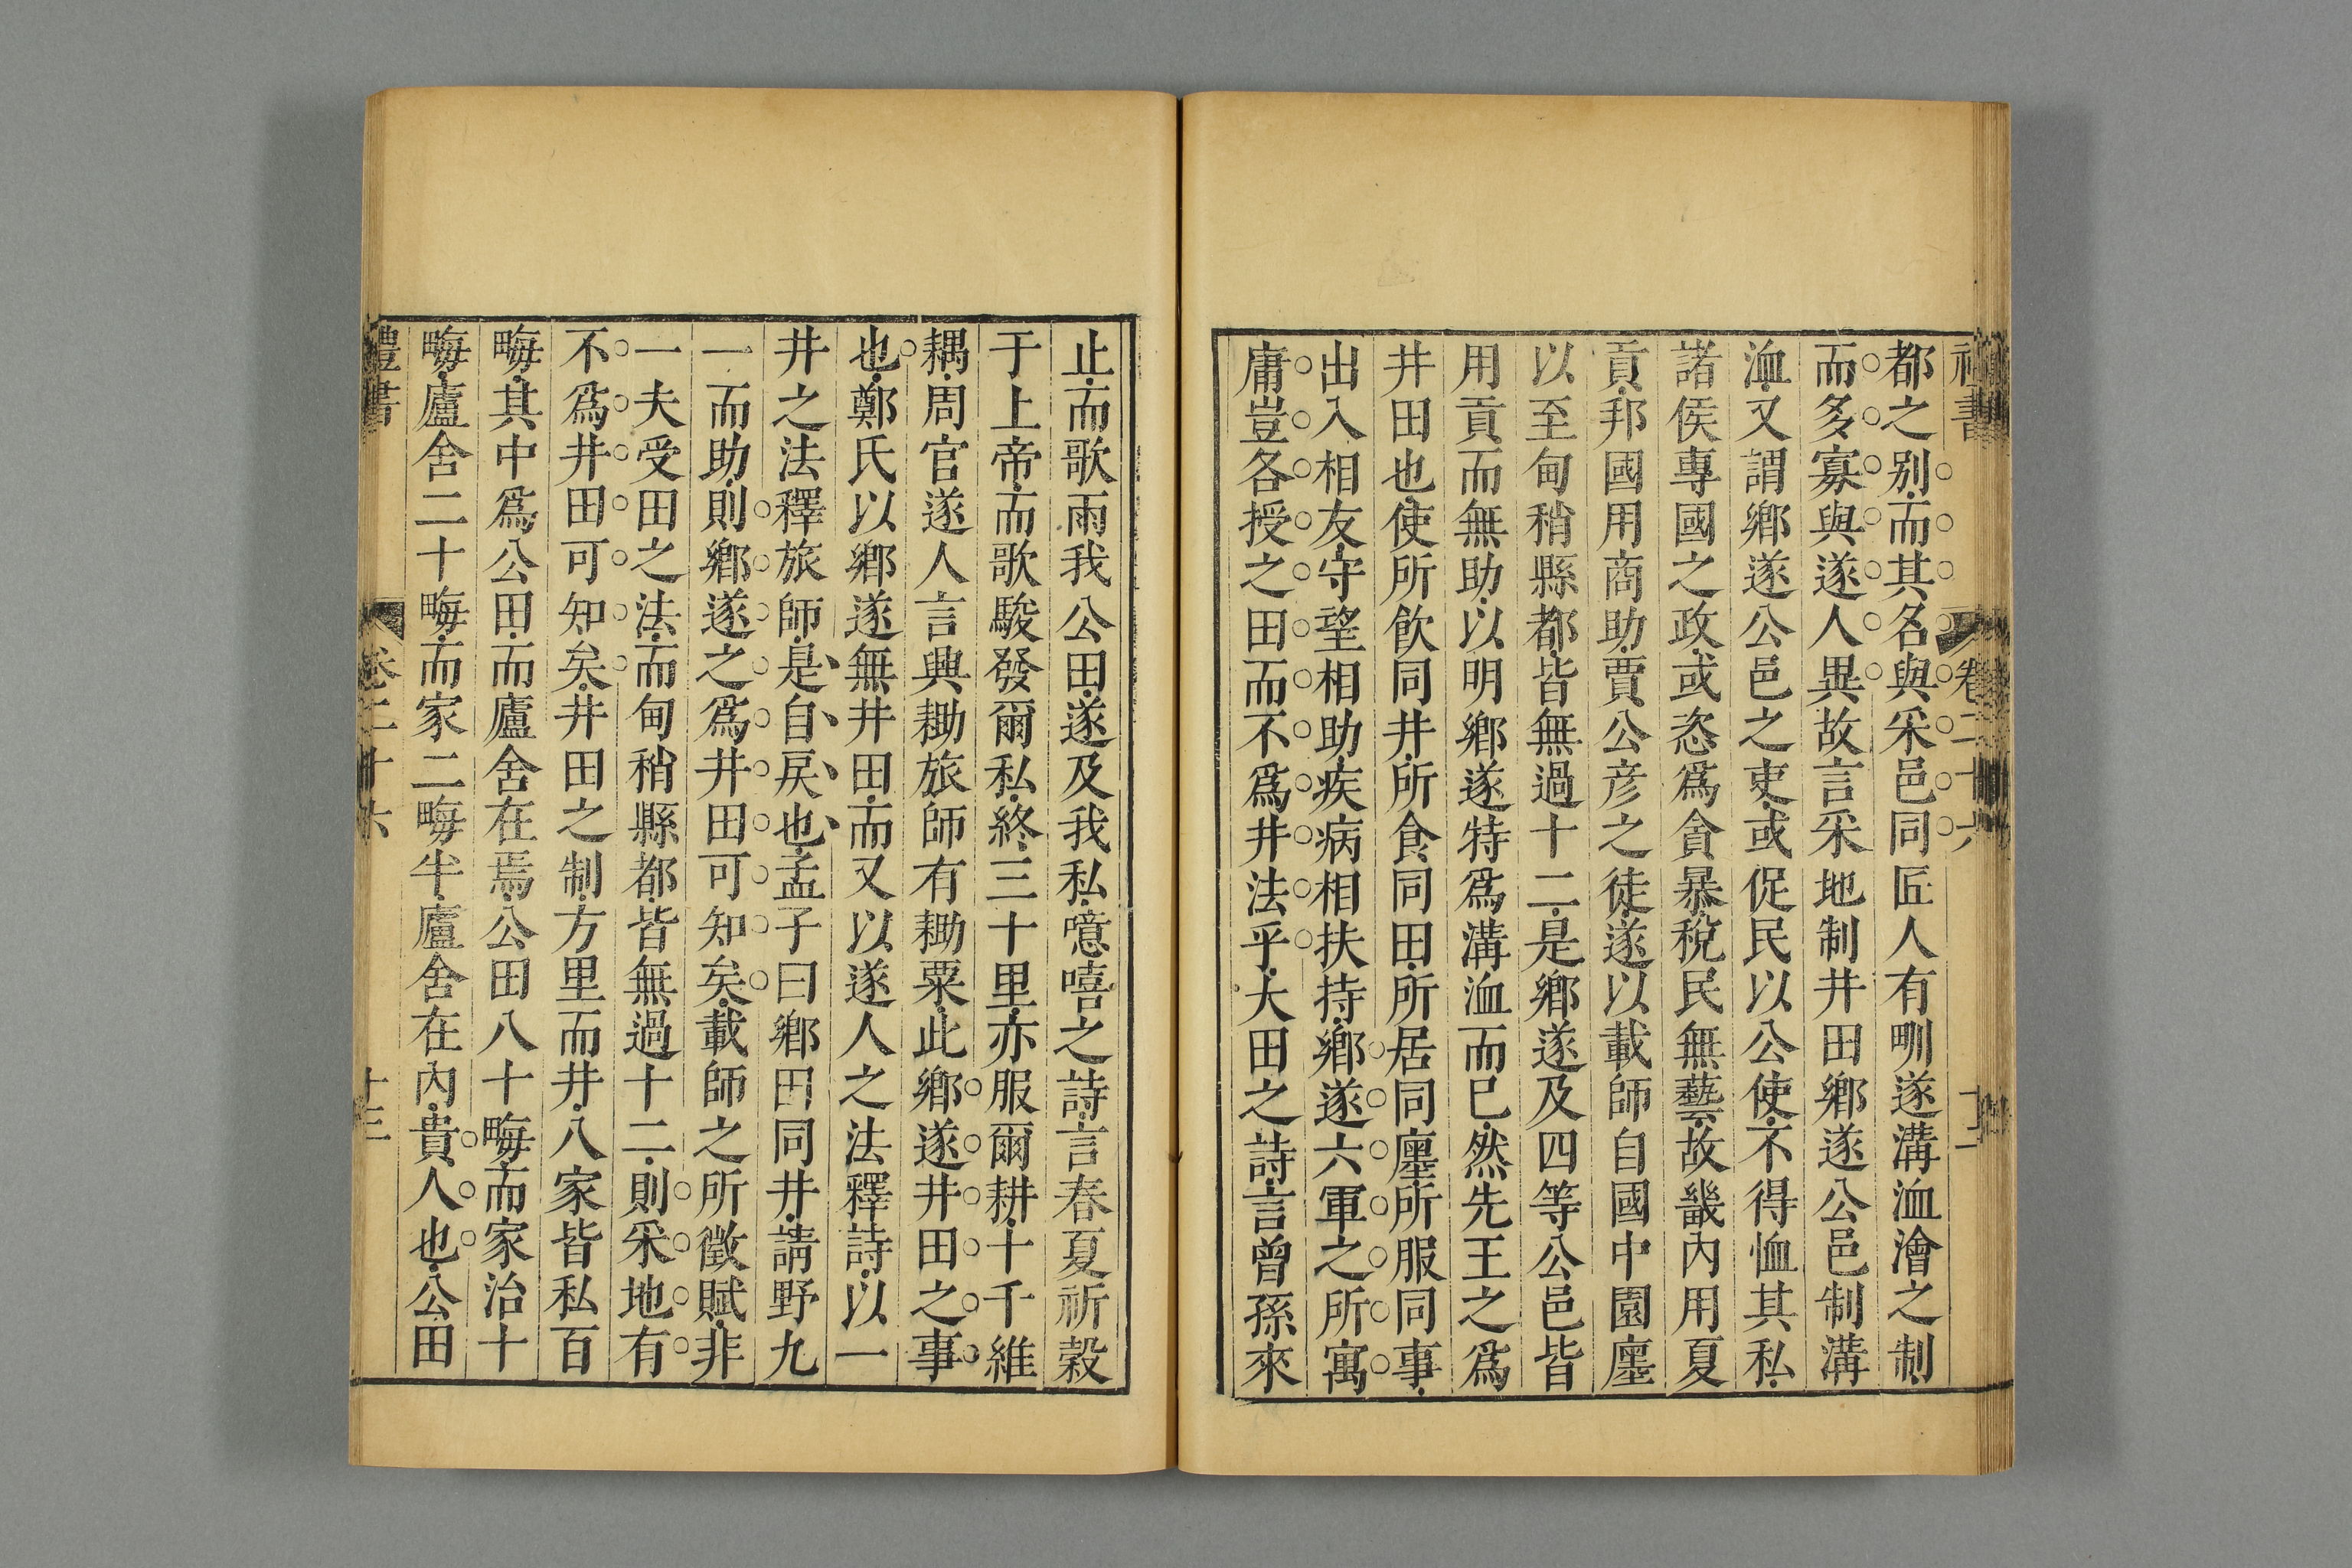 禮書
卷二十六
都之别而其名與采邑同匠人有畎遂溝洫澮之制
而多寡與遂人異故言采地制井田鄉遂公邑制溝
洫又謂鄉遂公邑之吏或促民以公使不得恤其私
諸侯專國之政或恣爲貪暴稅民無藝故畿内用夏
貢邦國用商助賈公彦之徒遂以載師自國中園廛
以至甸稍縣都皆無過十二是鄉遂及四等公邑皆
用貢而無助以明鄉遂特爲溝洫而已然先王之爲
井田也使所飲同井所食同田所居同廛所服同事
出入相友守望相助疾病相扶持鄉遂六軍之所寓
庸豈各授之田而不爲井法乎大田之詩言曾孫來
止而歌雨我公田遂及我私噫嘻之詩言春夏祈穀
于上帝而歌駿發爾私終三十里亦服爾耕十千維
耦周官遂人言興耡旅師有耡粟此鄉遂井田之事
也鄭氏以鄉遂無井田而又以遂人之法釋詩以一
井之法釋旅師是自戾也孟子曰鄉田同井請野九
一而助則鄉遂之爲井田可知矣載師之所徵賦非
一夫受田之法而甸稍縣都皆無過十二則采地有
不爲井田可知矣井田之制方里而井八家皆私百
畮其中爲公田而廬舍在焉公田八十畮而家治十
畮廬舍二十畮而家二畮半廬舍在内貴人也公田
禮書
卷二十六
十三